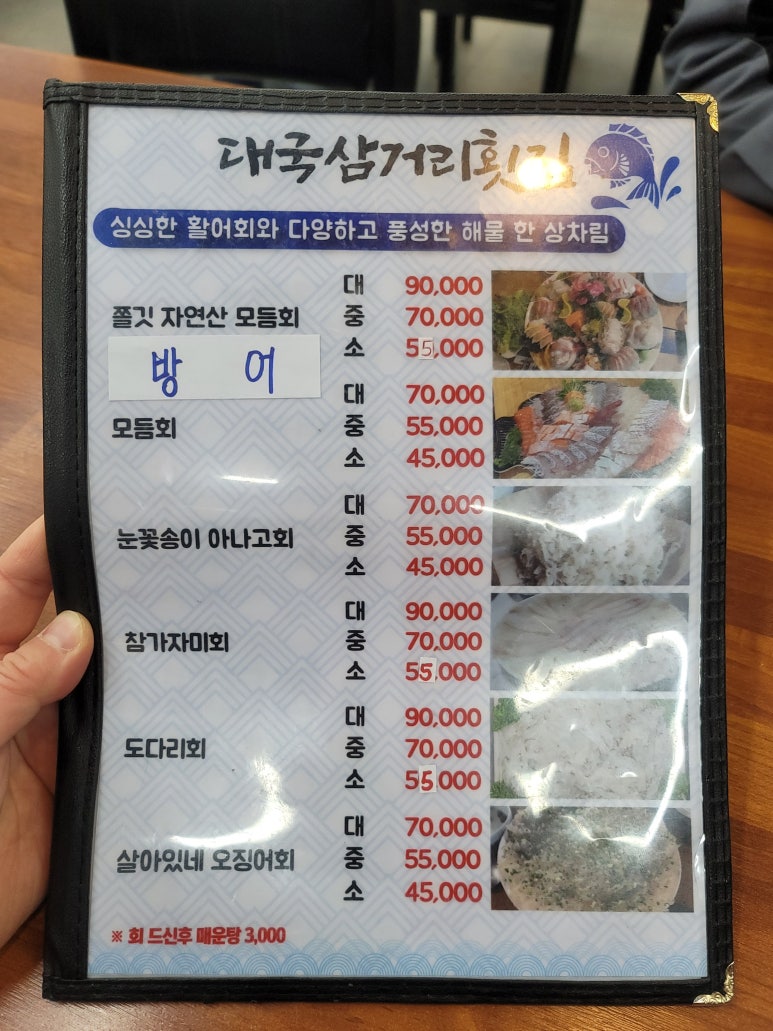 대국삼거리횟집
싱싱한 활어회와 다양하고 풍성한 해물 한 상차림
대 90,000
쫄깃 자연산 모듬회 중 70,000
소 55,000
방 어
대 70,000
모듬회 중 55,000
소 45,000
대 70,000
눈꽃송이 아나고회 중 55,000
소 45,000
대 90,000
참가자미회 중 70,000
소 55,000
대 90,000
도다리회 중 70,000
소 55,000
대 70,000
살아있네 오징어회 중 55,000
소 45,000
※ 회 드신후 매운탕 3,000